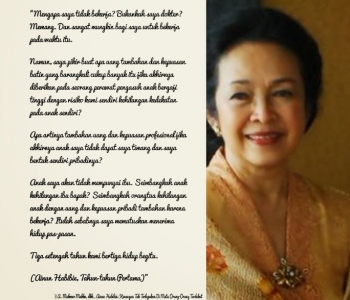 "Mengapa saya tidak bekerja? Bukankah saya dokter?
Memang. Dan sangat mungkin bagi saya untuk bekerja
pada waktu itu.
Namun, saya pikir buat apa uang tambahan dan kepuasan
batin yang barangkali cukup banyak itu jika akhirnya
diberikan pada seorang perawat pengasuh anak bergaji
tinggi dengan risiko kami sendiri kehilangan kedekatan
pada anak sendiri?
Apa artinya tambahan uang dan kepuasan profesional jika
akhirnya anak saya tidak dapat saya timang dan saya
bentuk sendiri pribadinya?
Anak saya akan tidak mempunyai ibu. Seimbangkah anak
kehilangan ibu bapak? Seimbangkah orangtua kehilangan
anak dengan uang dan kepuasan pribadi tambahan karena
bekerja? Itulah sebabnya saya memutuskan menerima
hidup pas-pasan.
Tiga setengah tahun kami bertiga hidup begitu.
(Ainun Habibie, Tahun-tahun Pertama)"
A. Makmur Makka, dkk, Ainun Habibie, Kenangan Tak Terlupakan Di Mata Orang-Orang Terdekat